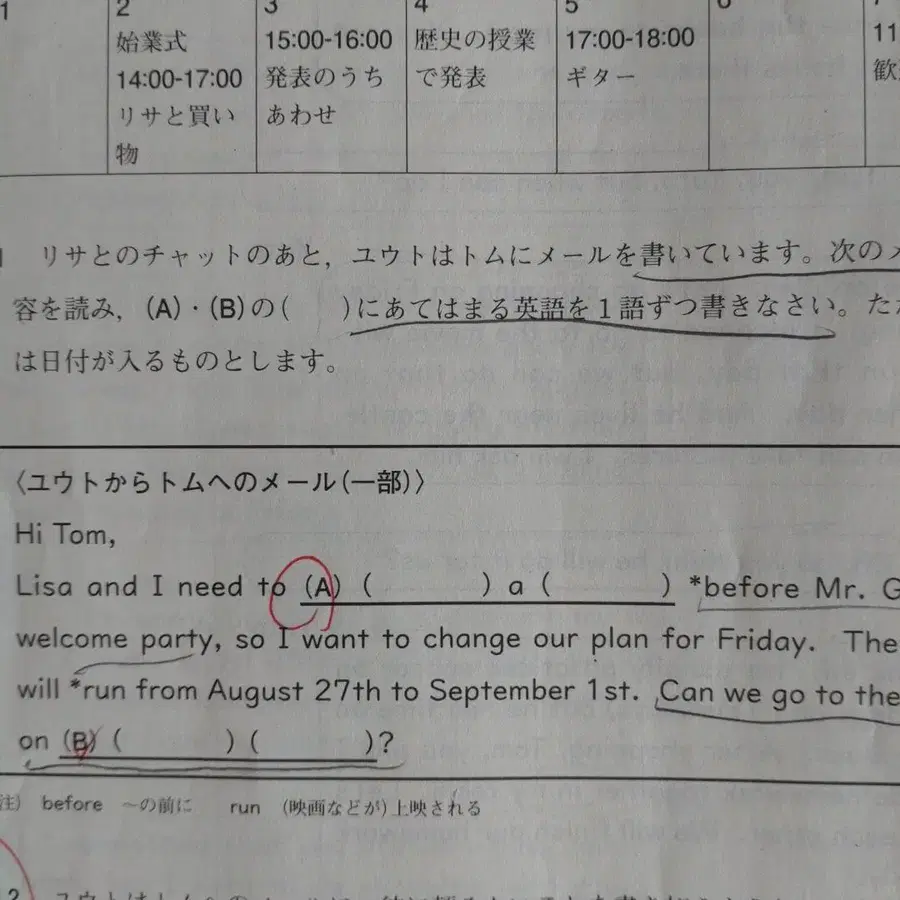 1
2
始業式
14:00-17:00
リサと買い
物
3
15:00-16:00
発表のうち
あわせ
4
歴史の授業
で発表
5
17:00-18:00
ギター
11
歓
リサとのチャットのあと，ユウトはトムにメールを書いています。次のメ
容を読み，(A)・(B)の(　　)にあてはまる英語を1語ずつ書きなさい。ただ
は日付が入るものとします。
〈ユウトからトムへのメール(一部)〉
Hi Tom,
Lisa and I need to (A) (　　　) a (　　　) *before Mr. G
welcome party, so I want to change our plan for Friday. The
will *run from August 27th to September 1st. Can we go to the
on (B) (　　　) (　　　)?
注) before ～の前に run (映画などが)上映される
2